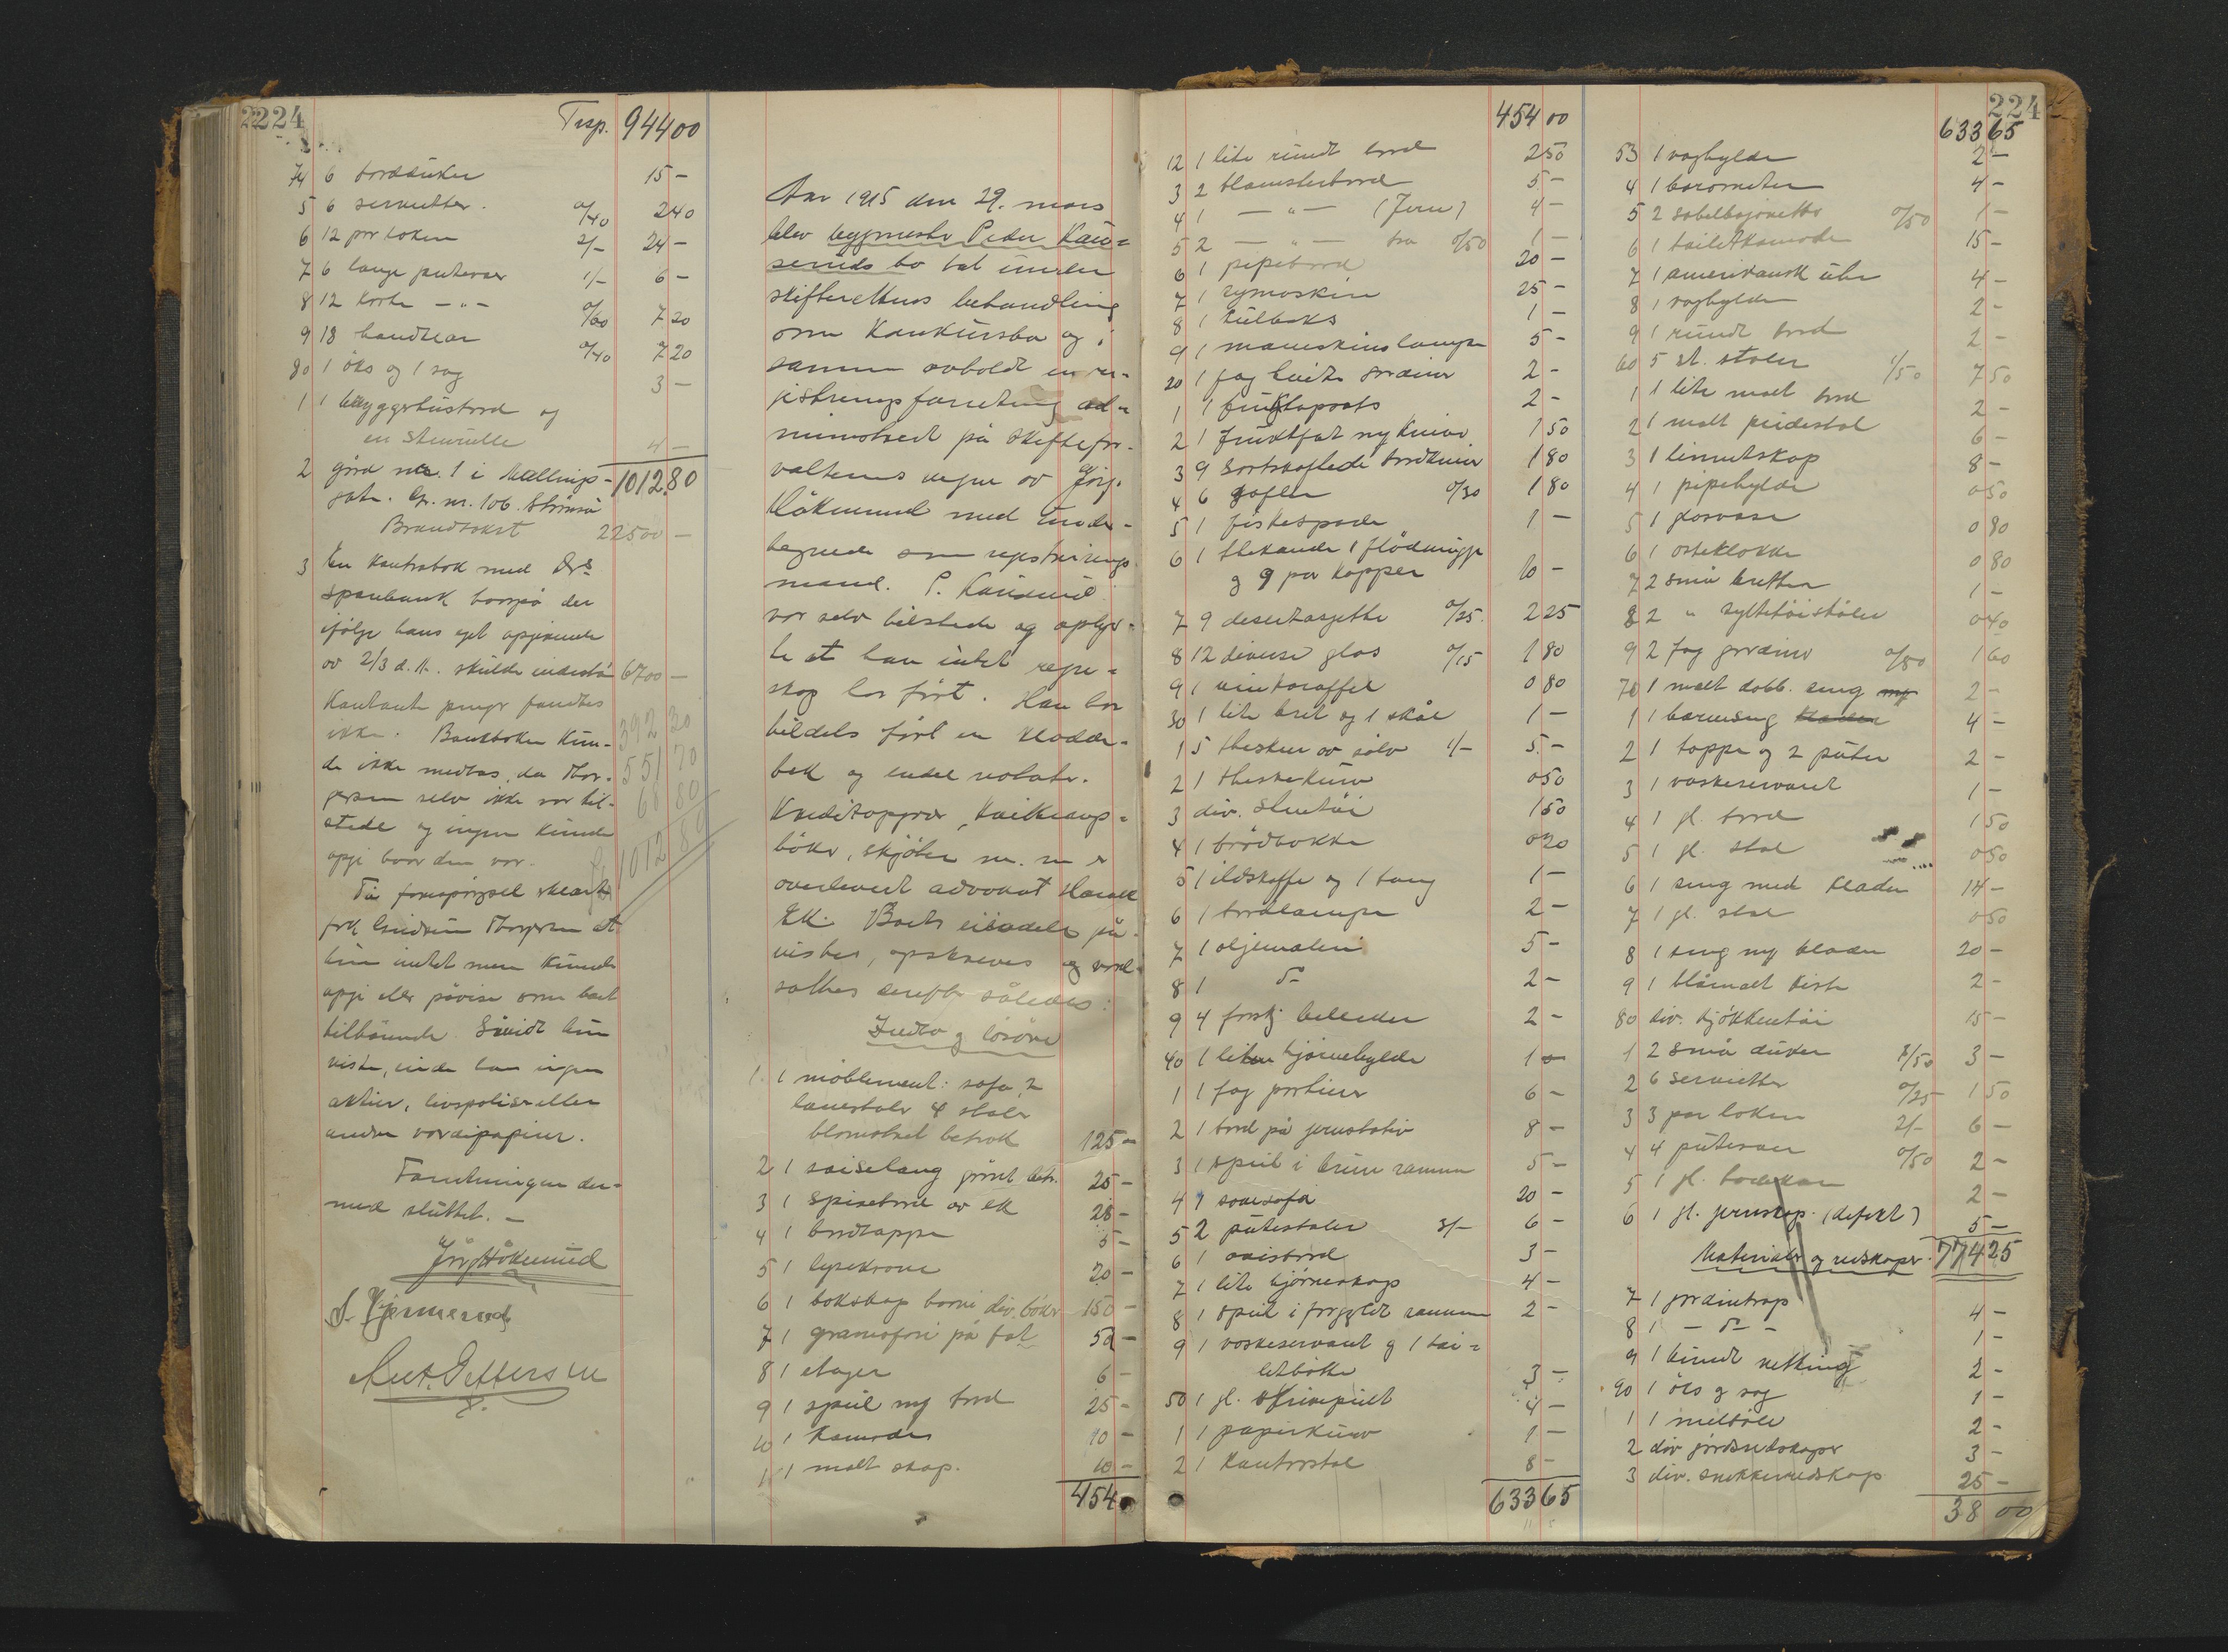 2224
Trsp. 944 00
74 6 bordduker 15 -
5 6 servietter. 0/40 2 40
6 12 par laken 2/- 24 -
7 6 lange putevar 1/- 6 -
8 12 korte - " - 0/60 7 20
9 18 handklær 0/40 7 20
80 1 öks og 1 sag 3 -
1 1 bryggerhusbord og
en 4 -
2 gård nr. 1 i - 1012 80
gate. Gr. nr. 106. Strömsö
Brandtakst 22500 -
3 En kontrabok med Drs
sparebank hvorpå der
ifölge hans eget opgivende
av 2/3 d. å. skulde indestå 6700 -
Kontante penger fandtes
ikke. Bankboken kun- 392 30
de ikke medtas, da Thor- 551 70
gersen selv ikke var til- 68 80
stede og ingen kunde
opgi hvor den var. 1012 80
På forespörgsel erklærte
frk Thorgersen at
hun intet mere kunde
opgi eller påvise som boet
tilhörende. Såvidt hun
visste, eiede han ingen
aktier, livspoliser eller
andre værdipapirer.
Forretningen der-
med sluttet. -
Jörg. Håkerud
Ant. Pettersen
Aar 1915 den 29. mars
blev bygmester Peder Knu-
seruds bo tat under
skifterettens behandling
som konkursbo og i
samme avholdt en re-
gistreringsforretning ad-
ministrert på skiftefor-
valterens vegne av Jörg.
Håkerud med under-
tegnede som registrerings
mand. P.
var selv tilstede og oplys-
te at han intet regn-
skap har fört. Han har
tildels fört en kladde-
bok og endel notater.
Kreditopgaver, kvitterings-
böker, skjöter m. m er
overlevert advokat Harald
Ek. Boets eiendele på-
vistes, opskreves og verd-
sattes derefter således:
Indbo og lösöre
1. 1 möblement: sofa, 2
lænestoler 4 stoler
blomstret betræk 125 -
2 1 saiselong grönt betr. 25 -
3 1 spisebord av ek 28 -
4 1 bordtæppe 5 -
5 1 lysekrone 20 -
6 1 bokskap hvori div. böker 150 -
7 1 gramofon på fot 50 -
8 1 etager 6 -
9 1 speil og bord 25 -
10 1 kamode 10 -
11 1 malt skap. 10 -
454
454 00
12 1 lite rundt bord 2 50
3 2 blomsterbord 5 -
4 1 - " - (Jern) 4 -
5 2 - " - træ 0/50 1 -
6 1 pipebord 20 -
7 1 symaskin 25 -
8 1 kulboks 1 -
9 1 maaneskinslampe 5 -
20 1 fag hvite gardiner 2 -
1 1 fruktopsats 2 -
2 1 fruktfat og kniver 1 50
3 9 sortskaftede bordkniver 1 80
4 6 gafler 0/30 1 80
5 1 fiskespade 1 -
6 1 thekande 1 flödemugge
og 9 par kopper 10 -
7 9 desertasjetter 0/25. 2 25
8 12 diverse glas 0/15 1 80
9 1 vinkaraffel 0 80
30 1 lite bret og 1 skål 1 -
1 5 theskeer av sölv 1/- 5 -
2 1 theskekurv 0 50
3 div. stentöi 1 50
4 1 brödbakke 0 20
5 1 ildskuffe og 1 tang 1 -
6 1 bordlampe 2 -
7 1 oljemaleri 5 -
8 1 do 2 -
9 4 forskj billeder 2 -
40 1 liten hjörnehylde 1 -
1 1 fag portierer 6 -
2 1 bord på jernstativ 8 -
3 1 speil i brun ramme 5 -
4 1 sovesofa 20 -
5 2 putestoler 3/- 6 -
6 1 avisbord 3 -
7 1 lite hjörneskap 4 -
8 1 speil i forgyldt ramme 2 -
9 1 vaskeservant og 1 toi-
letbötte 3 -
50 1 gl. 4 -
1 1 papirkurv 1 -
2 1 kontorstol 8 -
633 65
224
633 65
53 1 vaghylde 2 -
4 1 barometer 4 -
5 2 sabelbajonetter 0/50 1 -
6 1 toiletkamode 15 -
7 1 amerikansk uhr 4 -
8 1 vaghylde 2 -
9 1 rundt bord 2 -
60 5 st. stoler 1/50 7 50
1 1 lite malt bord 2 -
2 1 malt pidestal 6 -
3 1 linnetskap 8 -
4 1 pipehylde 0 50
5 1 glasvase 0 80
6 1 osteklokke 0 80
7 2 små bretter 1 -
8 2 " syltetöiskåler 0 40
9 2 fag gardiner 0/80 1 60
70 1 malt dobb. seng 2 -
1 1 barneseng 4 -
2 1 tæppe og 2 puter 2 -
3 1 vaskeservant 1 -
4 1 gl. bord 1 50
5 1 gl. stol 0 50
6 1 seng med klæder 14 -
7 1 gl. stol 0 50
8 1 seng og klæder 20 -
9 1 blåmalt kiste 2 -
80 div. kjökkentöi 15 -
1 2 små duker 1/50 3 -
2 6 servietter 0/25 1 50
3 3 par laken 2/- 6 -
4 4 putevar 0/50 2 -
5 1 gl. badekar 2 -
6 1 gl. jernskap. (defekt) 5 -
Materialer og redskaper. 774 25
7 1 gardintrap 4 -
8 1 - do - 1 -
9 1 bundt netting 2 -
90 1 öks og sag 1 -
1 1 2 -
2 div jordredskaper 3 -
3 div. snekkerredskap 25 -
38 00